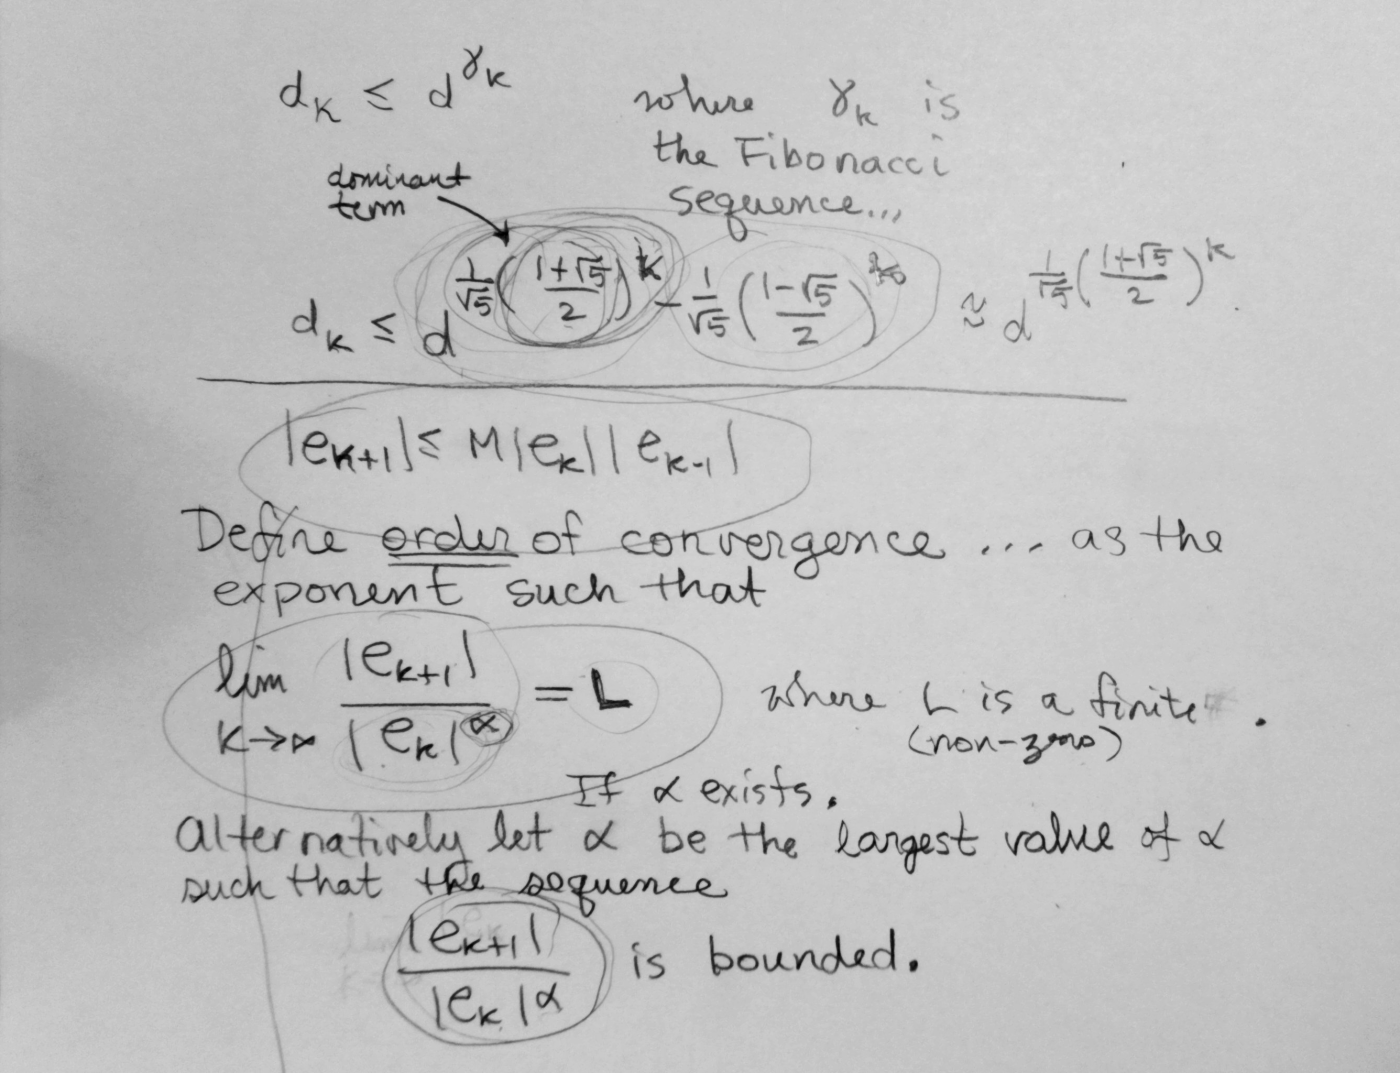 d_k ≤ d^{γ_k} where γ_k is
the Fibonacci
sequence...
dominant
term
d_k ≤ d^{\frac{1}{√5}(\frac{1+√5}{2})^k - \frac{1}{√5}(\frac{1-√5}{2})^k} ≈ d^{\frac{1}{√5}(\frac{1+√5}{2})^k}
|e_{k+1}| ≤ M|e_k||e_{k-1}|
Define order of convergence ... as the
exponent such that
lim_{k→∞} \frac{|e_{k+1}|}{|e_k|^α} = L where L is a finite .
(non-zero)
If α exists.
Alternatively let α be the largest value of α
such that the sequence
\frac{|e_{k+1}|}{|e_k|^α} is bounded.